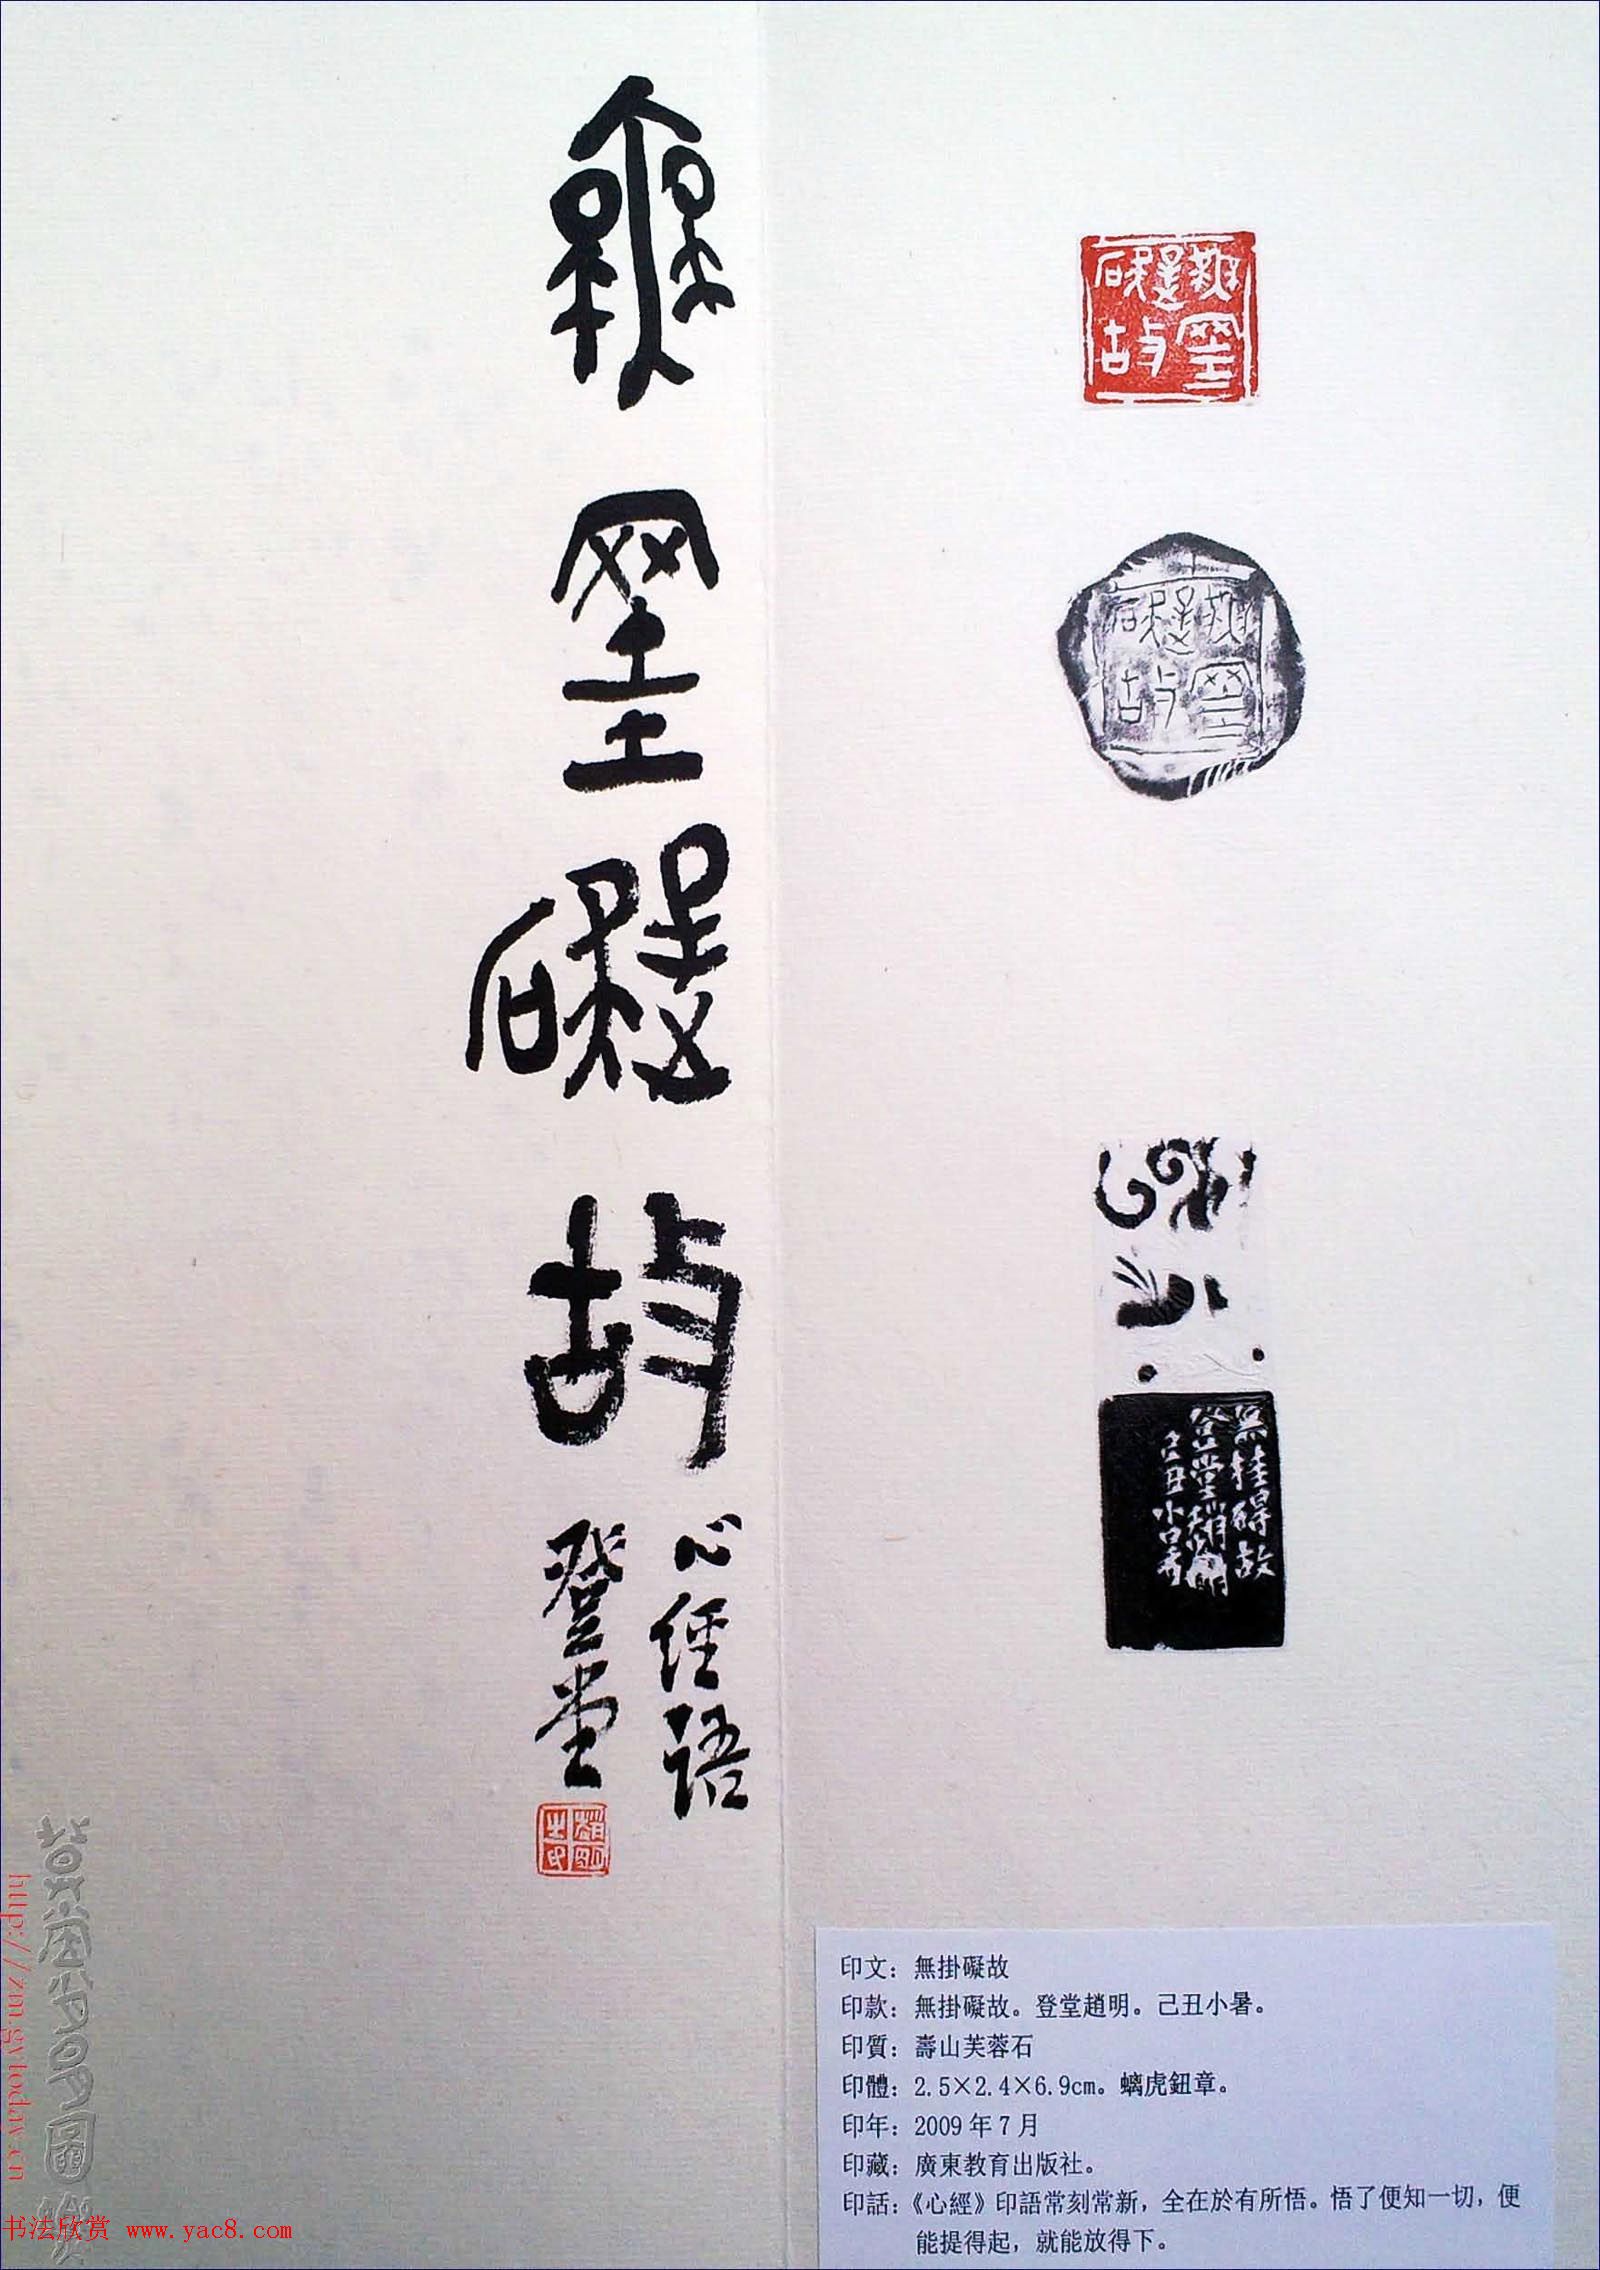 無罣礙故
心經語
登堂
趙明之印
無罣礙故
無罣礙故
無掛碍故
登堂趙明
己丑小暑
印文：無掛礙故
印款：無掛礙故。登堂趙明。己丑小暑。
印質：壽山芙蓉石
印體：2.5×2.4×6.9cm。螭虎鈕章。
印年：2009年7月
印藏：廣東教育出版社。
印話：《心經》印語常刻常新，全在於有所悟。悟了便知一切，便
能提得起，就能放得下。
http://zmgytoday.cn
书法欣赏 www.yac8.com